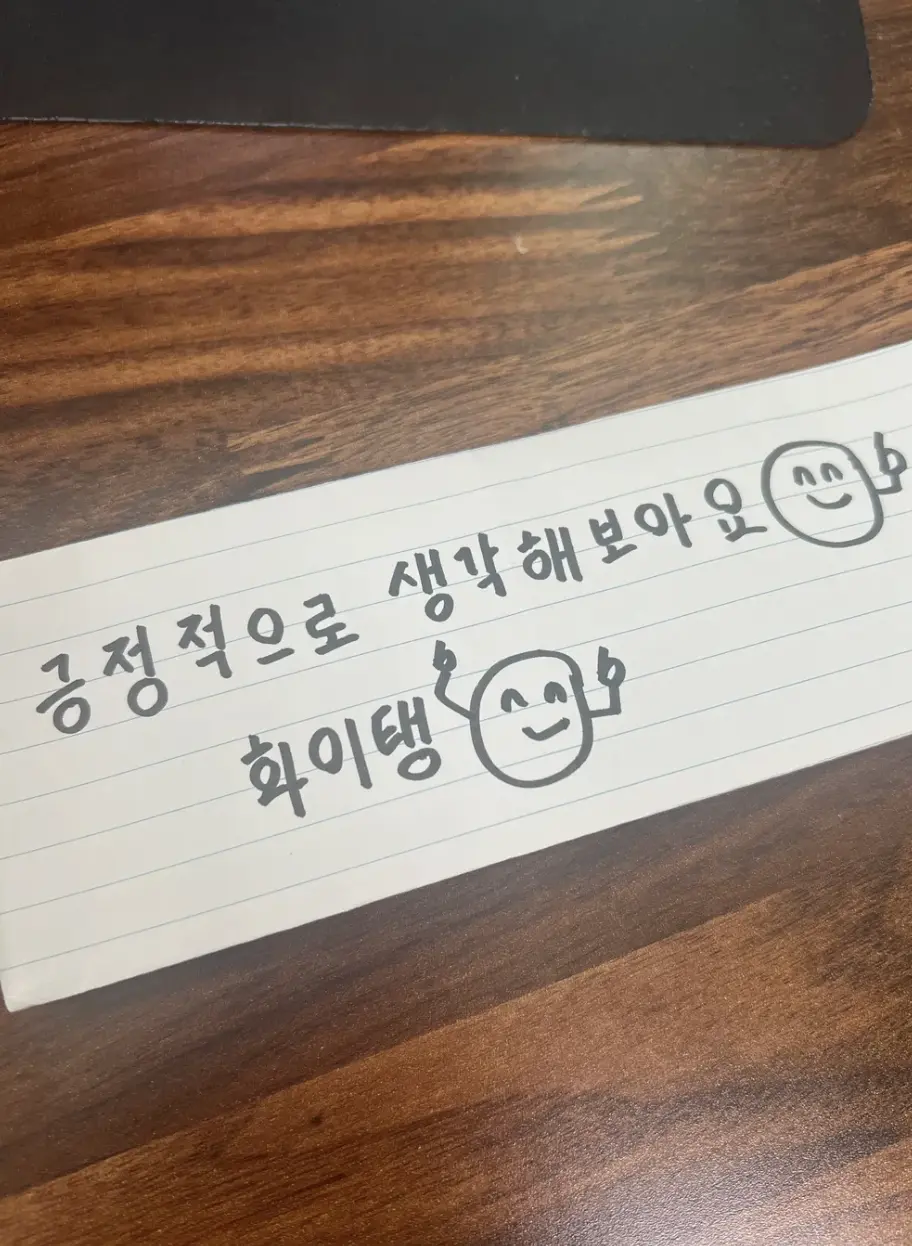 긍정적으로 생각해보아요
화이탱